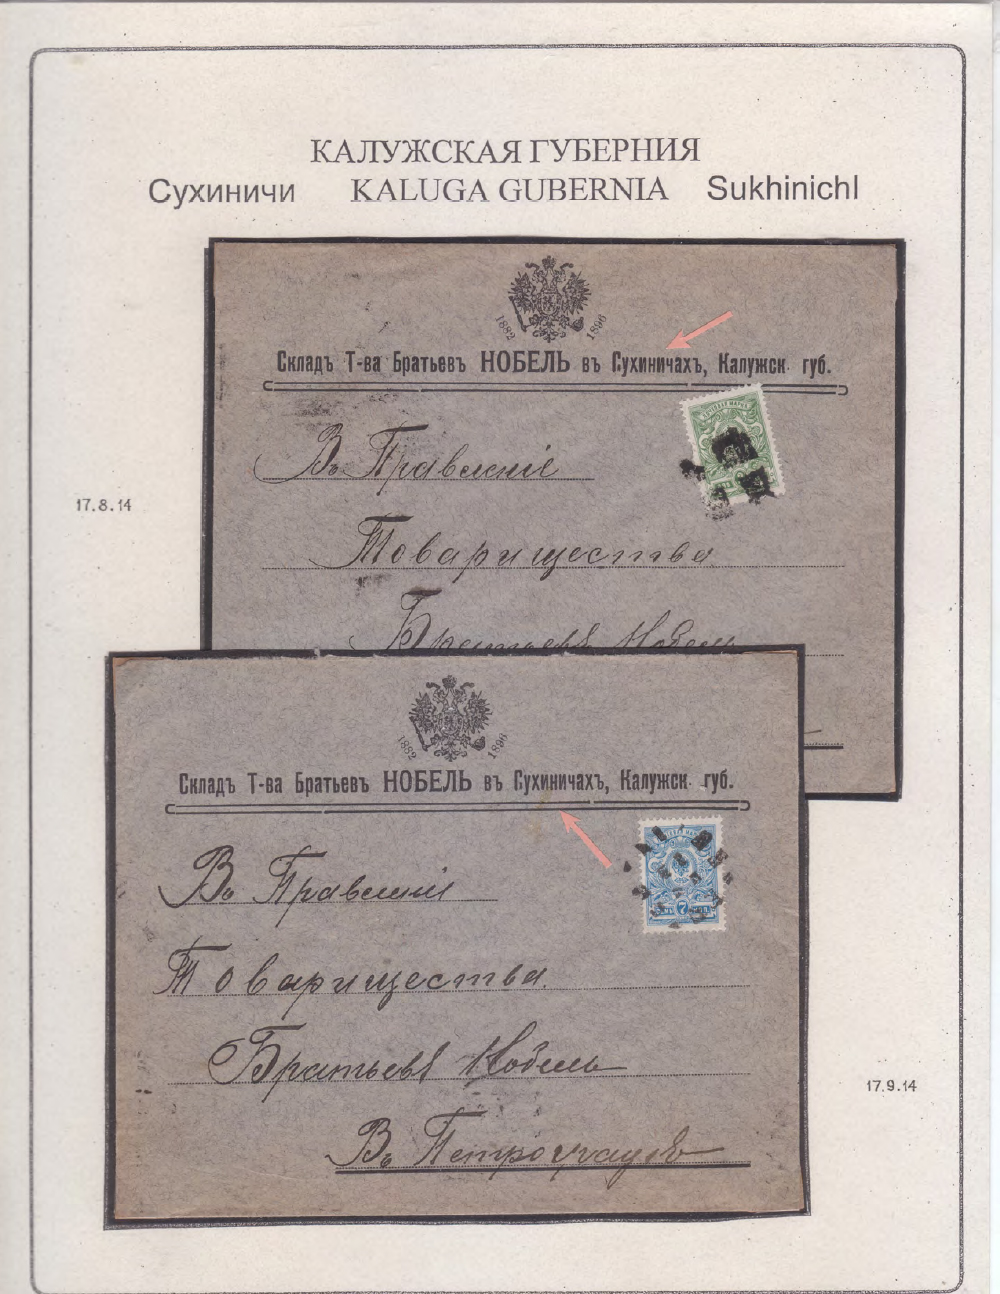 КАЛУЖСКАЯ ГУБЕРНИЯ
Сухиничи KALUGA GUBERNIA Sukhinichl
1882 1896
Складъ Т-ва Братьевъ НОБЕЛЬ въ Сухиничахъ, Калужск. губ.
Въ Правленіе
17.8.14
Товарищества
Братьевъ Нобель
1882 1896
Складъ Т-ва Братьевъ НОБЕЛЬ въ Сухиничахъ, Калужск. губ.
7
Въ Правленіе
Товарищества
Братьевъ Нобель
17.9.14
Въ Петроградъ